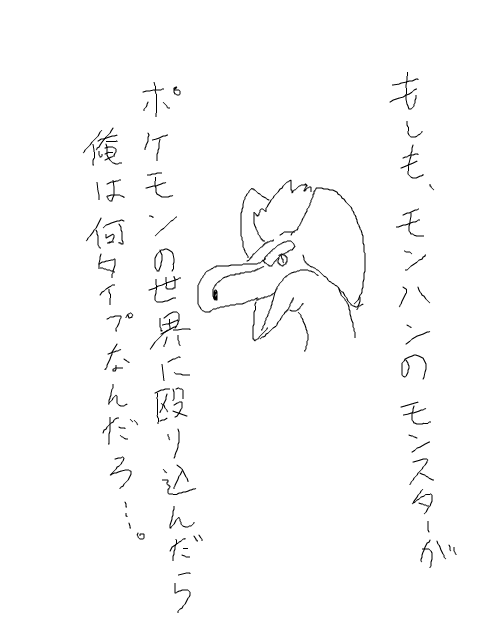 もしも、モンハンのモンスターが
ポケモンの世界に殴り込んだら
俺は何タイプなんだろ…。